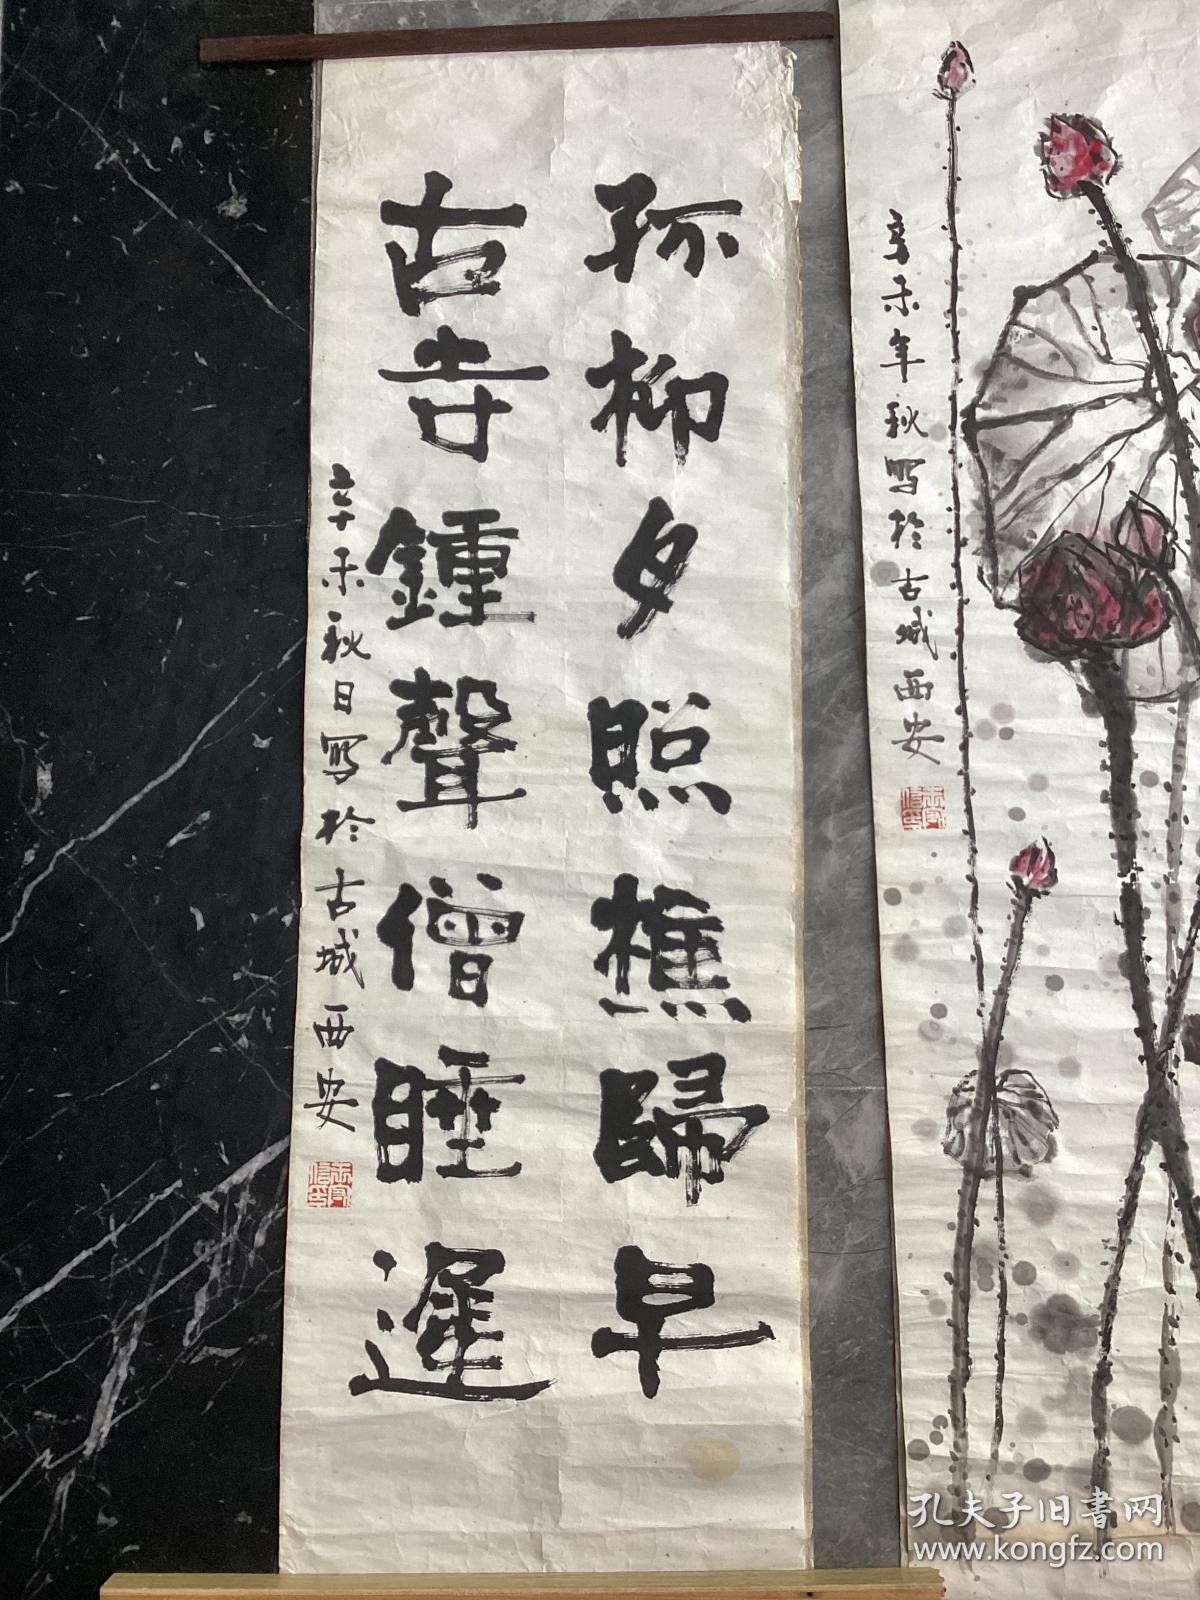 孤柳夕照樵歸早
古寺鍾聲僧睡遲
辛未秋日写於古城西安
辛未年秋写於古城西安
孔夫子旧書网
www.kongfz.com